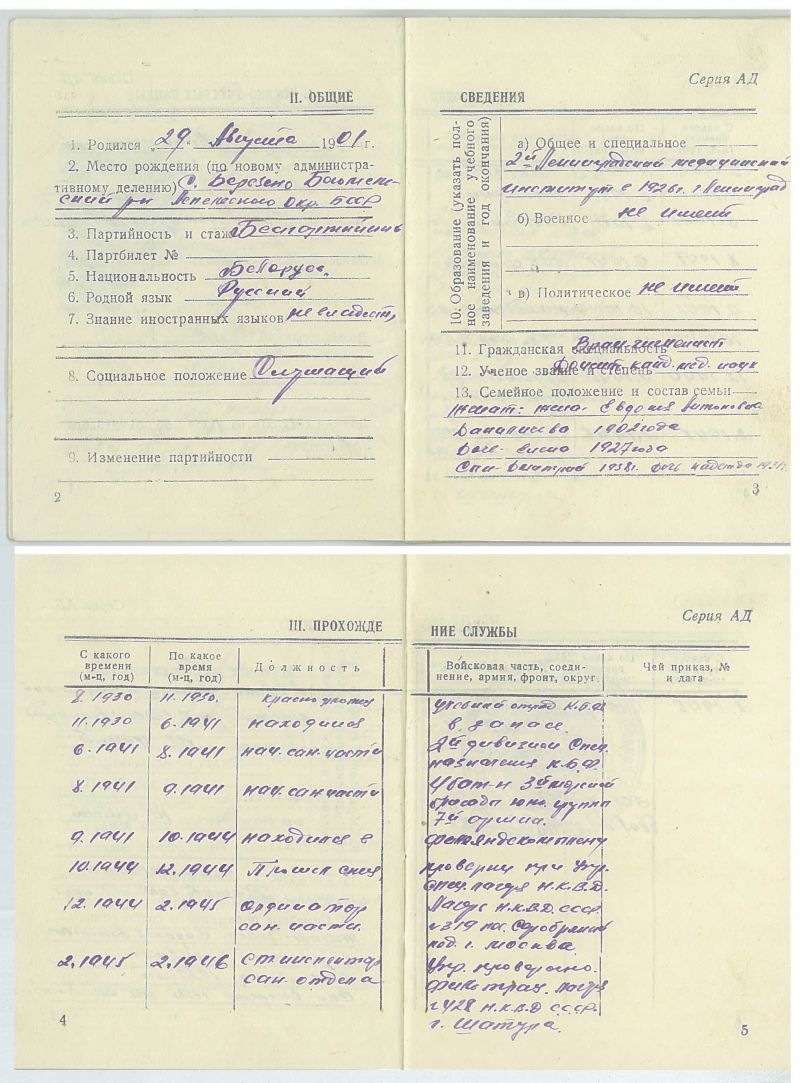 Серия АД
II. ОБЩИЕ
1. Родился „29" Августа 1901 г.
2. Место рождения (по новому администра-
тивному делению) с. Березено
ский р-н Лепельского Окр. БССР
3. Партийность и стаж Беспартийный
4. Партбилет №
5. Национальность Беларус,
6. Родной язык Русский
7. Знание иностранных языков не владеет,
8. Социальное положение Служащий
9. Изменение партийности
2
СВЕДЕНИЯ
10. Образование (указать пол-
ное наименование учебного
заведения и год окончания)
а) Общее и специальное
2й Ленинградский медицинский
институт с 1926г. г. Ленинград
б) Военное не имеет
в) Политическое не имеет
11. Гражданская специальность Врач
12. Ученое звание и степень Доцент канд. мед. наук
13. Семейное положение и состав семьи
Женат: жена- Евдокия Антоновна
1902 года
Дочь- Елена 1927 года
Сын- Дмитрий 1938г. дочь Надежда
3
Серия АД
III. ПРОХОЖДЕ
НИЕ СЛУЖБЫ
С какого времени (м-ц, год) По какое время (м-ц, год) Должность Войсковая часть, соеди- нение, армия, фронт, округ Чей приказ, № и дата
8.1930 11.1930. краснофлотец учебный отряд К.Б.Ф
11.1930 6.1941 находился в запасе.
6.1941 8.1941 нач. сан. части 2й дивизии Спец.
назначения К.Б.Ф.
8.1941 9.1941 нач. сан части 4 бат-н 3й морской
бригады юж. группа
7й армии.
9.1941 10.1944 находился в финляндском плену
10.1944 12.1944 Прошел спец. проверки при Упр.
спец. лагеря Н.К.В.Д.
12.1944 2.1945 ординатор Лагерь Н.К.В.Д. СССР.
сан. части. №319
под. г. Москва.
2.1945 2.1946 ст. инспектор Упр. проверочно-
сан. отдела фильтрац. лагеря
№428 Н.К.В.Д СССР.
г. Шатура.
4
5